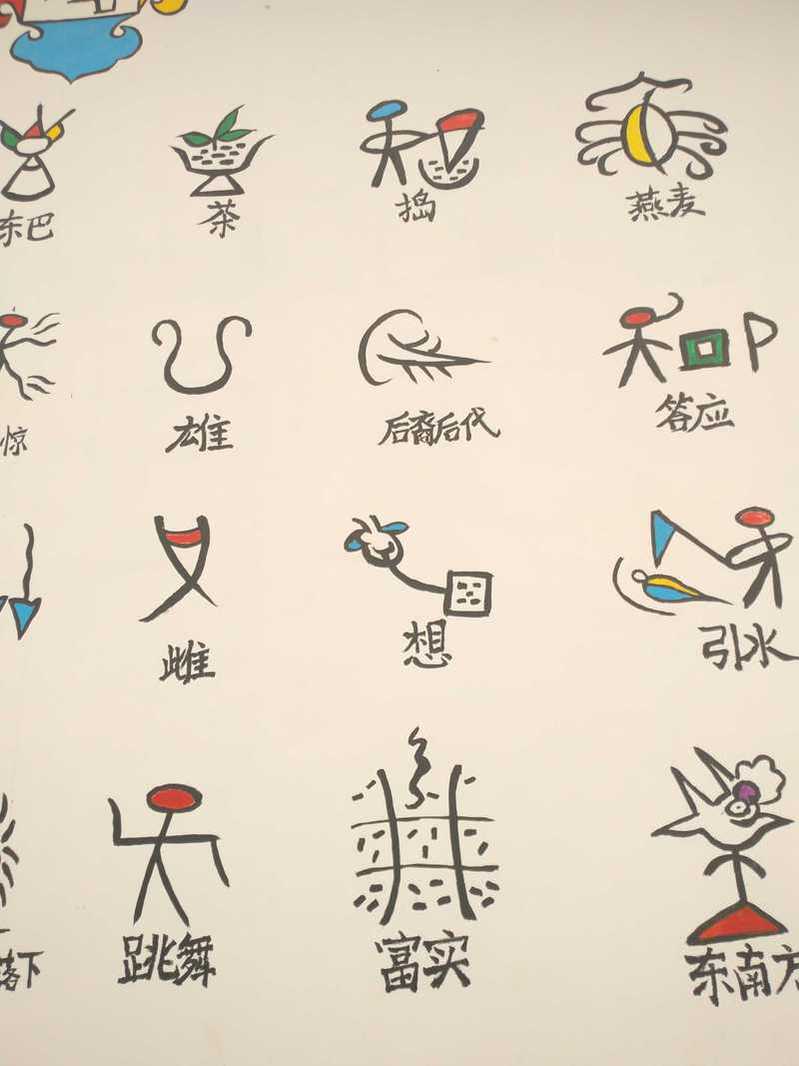 东巴
茶
捣
燕麦
惊
雄
后裔后代
答应
雌
想
引水
落下
跳舞
富实
东南方